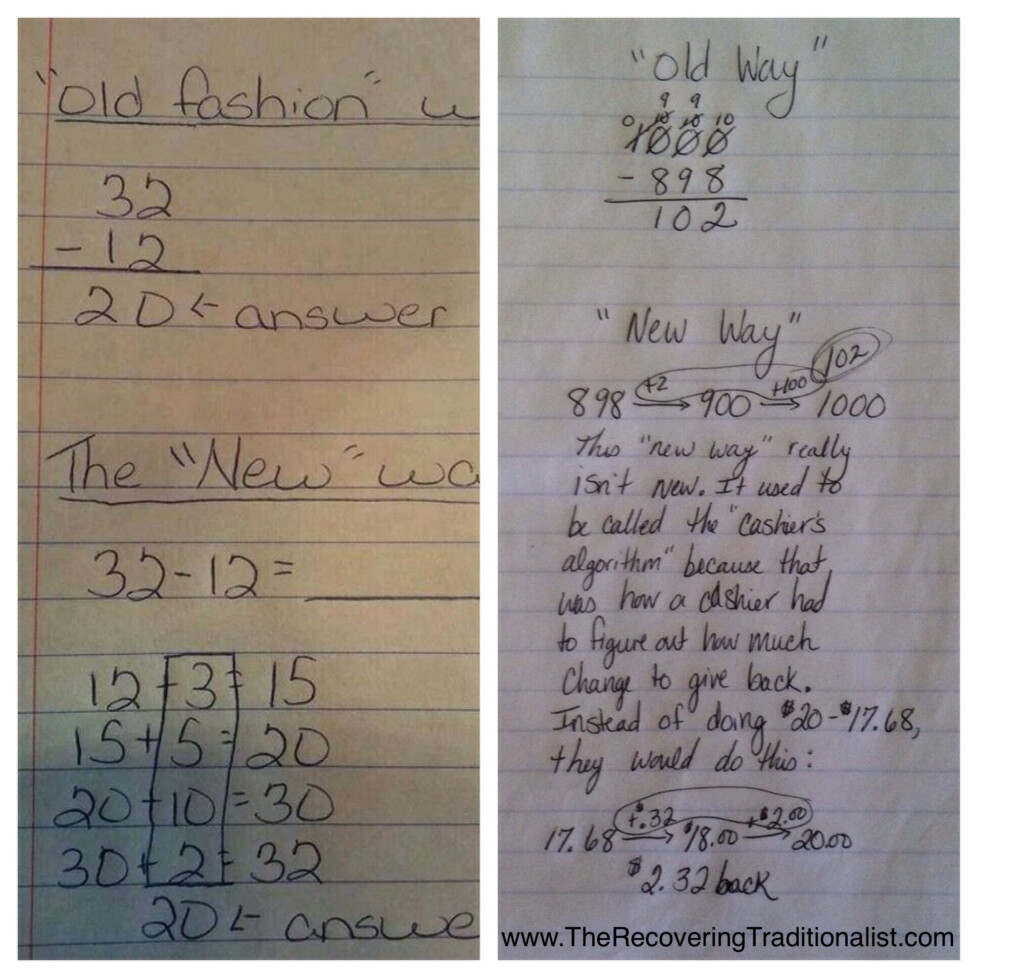 "Old fashion" w
32
- 12
20 ← answer
The "New" wa
32-12 = ____
12 + 3 = 15
15 + 5 = 20
20 + 10 = 30
30 + 2 = 32
20 ← answe
"Old Way"
9 9
0 10 10 10
1000
- 898
102
"New Way"
102
+2 +100
898 → 900 → 1000
This "new way" really
isn't new. It used to
be called the "cashier's
algorithm" because that
was how a cashier had
to figure out how much
change to give back.
Instead of doing $20-$17.68,
they would do this:
+$.32 +$2.00
17.68 → $18.00 → 20.00
$2.32 back
www.TheRecoveringTraditionalist.com